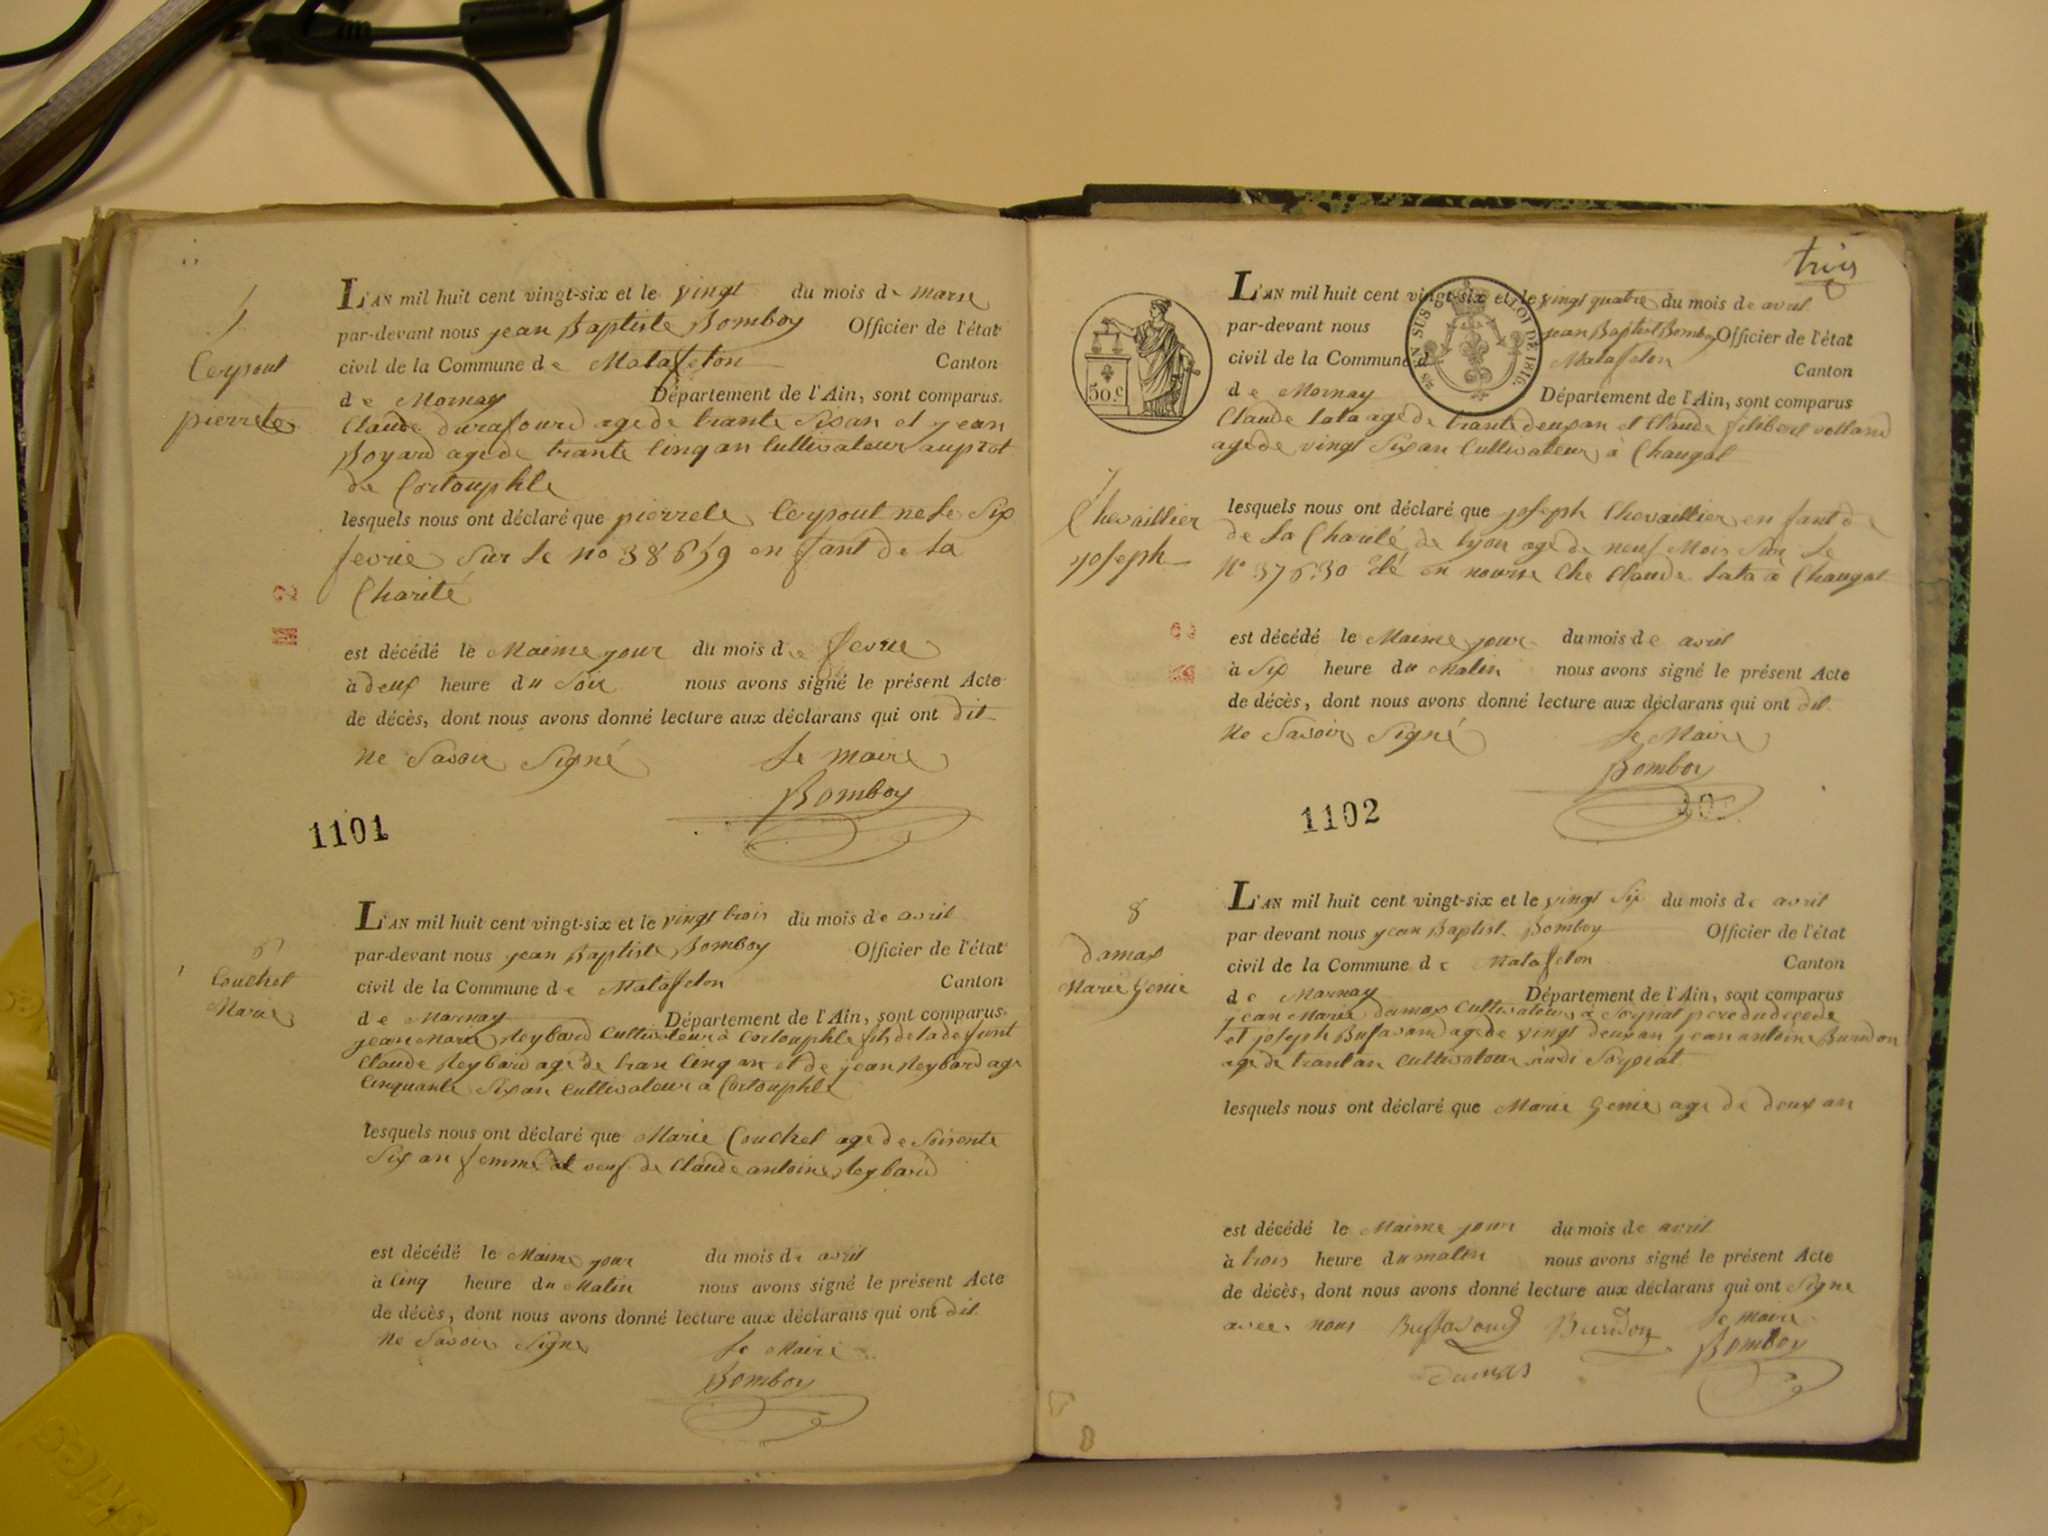 5
Ceysout
pierrete
L'AN mil huit cent vingt-six et le vingt du mois de mars
par-devant nous jean Baptiste Bomboy Officier de l'état
civil de la Commune de Matafelon Canton
de Mornay Département de l'Ain, sont comparus
Claude durafourd age de trante sixan et jean
Boyard age de trante cinq an Cultivateur auprot
de Cortouphle
lesquels nous ont déclaré que pierrete Ceysout ne le Six
fevrie Sur le no 38659 en fant de la
Charité
est décédé le Maime jour du mois de fevrie
à deux heure du Soir nous avons signé le présent Acte
de décès, dont nous avons donné lecture aux déclarans qui ont dit
ne Savoir Signé le maire
Bomboy
1101
6
Couchet
Marie
L'AN mil huit cent vingt-six et le vingt trois du mois de avril
par-devant nous jean Baptiste Bomboy Officier de l'état
civil de la Commune de Matafelon Canton
de Marnay Département de l'Ain, sont comparus
jean Marie Reybard Cultivateur à Cortouphle fils de la defunt
Claude Reybard age de tran cinq an et de jean Reybard age
cinquante Sixan cultivateur a Cortouphle
lesquels nous ont déclaré que Marie Couchet age de Soisente
Six an femme veuf de Claude antoine Reybard
est décédé le Maime jour du mois de avril
à cinq heure du Matin nous avons signé le présent Acte
de décès, dont nous avons donné lecture aux déclarans qui ont dit
ne Savoir Signe le Maire
Bomboy
trois
50 c.
LOI DE 1816
7
Chevaillier
joseph
L'AN mil huit cent vingt-six et le vingt quatre du mois de avril
par-devant nous jean Baptist Bomboy Officier de l'état
civil de la Commune d Matafelon Canton
de Mornay Département de l'Ain, sont comparus
Claude tata age de trante deuxan et Claude filibert volland
age de vingt Sixan Cultivateur à Chaugat
lesquels nous ont déclaré que joseph Chevaillier en fant de
de la Charité de lyon age de neuf Mois Sur le
No 37630 été en nourse Che Claude tata à Chaugat
est décédé le Maime jour du mois de avril
à Six heure du Matin nous avons signé le présent Acte
de décès, dont nous avons donné lecture aux déclarans qui ont dit
ne Savoir Signé le Maire
Bomboy
1102
8
Damas
Marie Genie
L'AN mil huit cent vingt-six et le vingt Six du mois de avril
par devant nous jean Baptist Bomboy Officier de l'état
civil de la Commune de Matafelon Canton
de Marnay Département de l'Ain, sont comparus
jean Marie damas Cultivateur a Soysiat pere du decede
et joseph Bufavand age de vingt deuxan jean antoine Burdon
age de trant an cultivateur Soysiat
lesquels nous ont déclaré que Marie Genie age de deux an
est décédé le Maime jour du mois de avril
à trois heure du matin nous avons signé le présent Acte
de décès, dont nous avons donné lecture aux déclarans qui ont Signe
avec nous Buffavand Burdon le maire
Bomboy
Damas